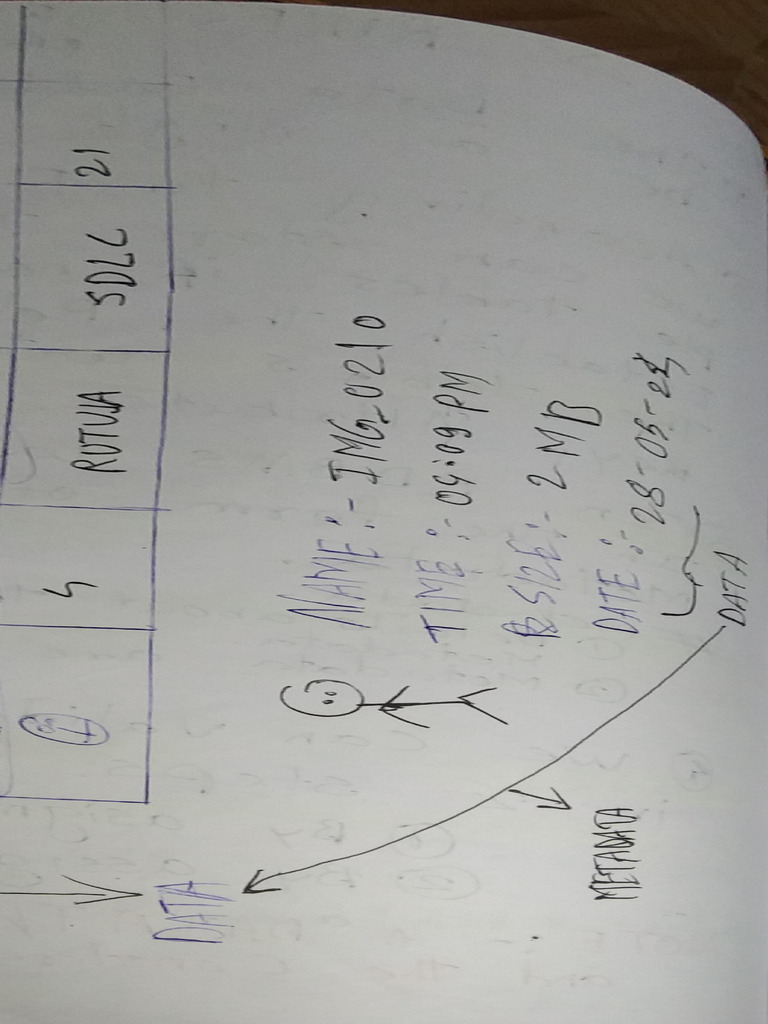 4 RUTUJA SDLC 21
DATA
NAME :- IMG_0210
TIME :- 04:09 PM
SIZE :- 2 MB
DATE :- 28-05-24
DATA
METADATA